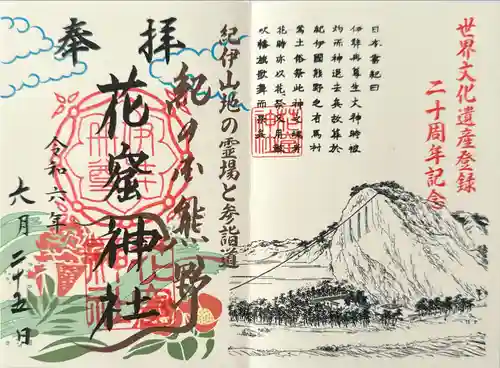 世界文化遺産登録
二十周年記念
日本書紀曰
伊弉冉尊生火神時被
灼而神退去矣故葬於
紀伊國熊野之有馬村
焉土俗祭此神之魂者
花時亦以花祭又用鼓
吹幡旗歌舞而祭矣
紀伊山地の霊場と参詣道
奉拝
紀の国熊野
花窟神社
令和六年
六月二十五日